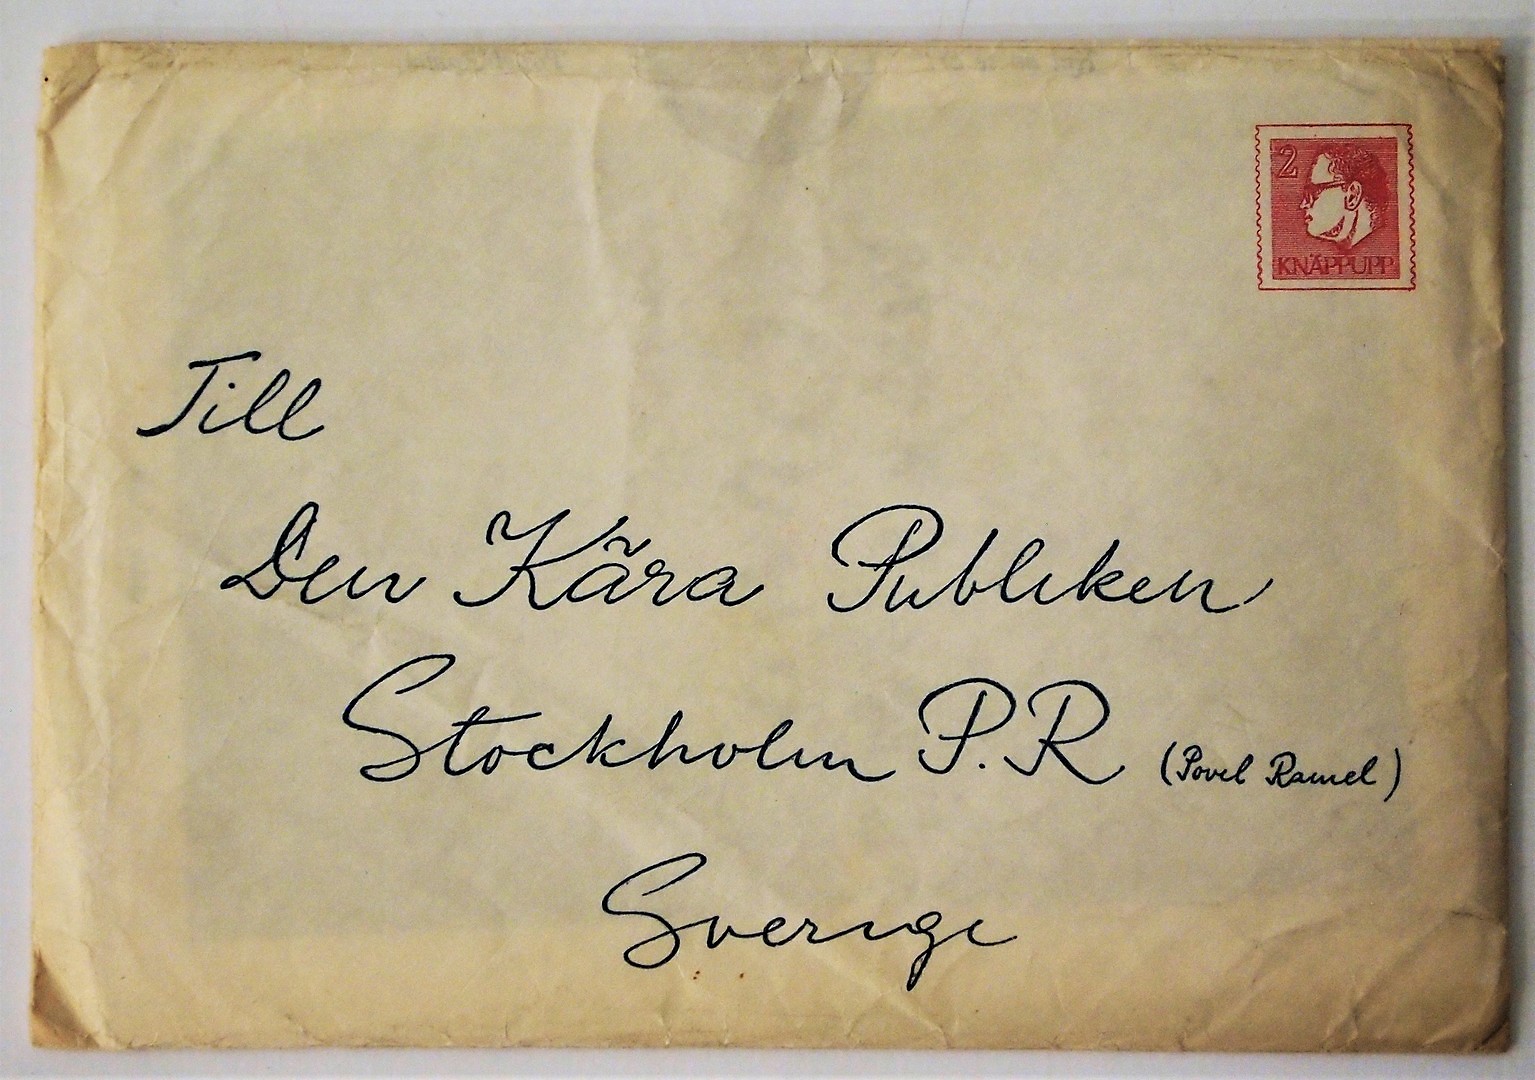 2
KNÄPPUPP
Till
Den Kära Publiken
Stockholm P.R (Povel Ramel)
Sverige